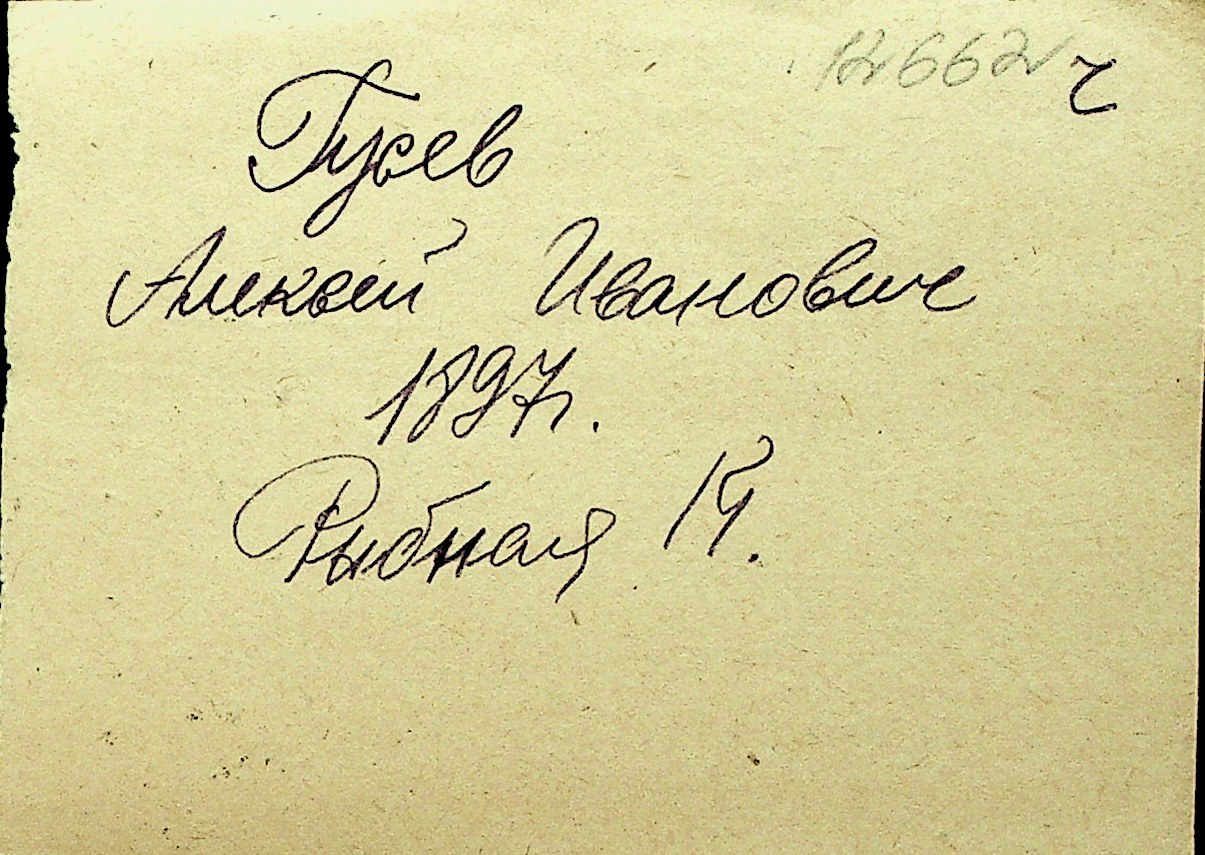 126621 г
Гусев
Алексей Иванович
1897г.
Рыбная 14.